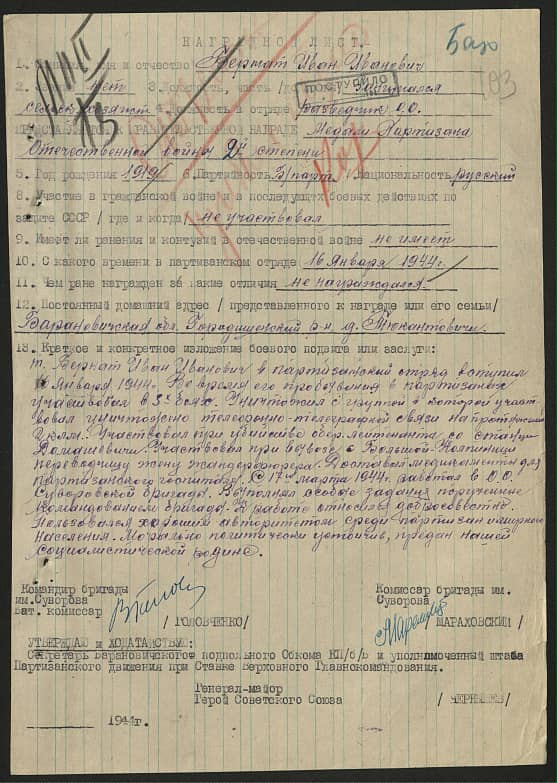 НАГРАДНОЙ ЛИСТ.
Бар
103
1. отчество Вернат Иван Иванович
ПОСТУПИЛО
2. нет 3. Занимался
сельск. хозяйст 4. Должность в отряде Разведчик О.О.
НАГРАДЕ Медали Партизана
Отечественной войны 2й степени
5. Год рождения 1919 6. Партийность Б/парт. Национальность русский
8. Участие в гражданской войне и в последующих боевых действиях по
защите СССР / где и когда/ не участвовал
9. Имеет ли ранения и контузии в отечественной войне не имеет
10. С какого времени в партизанском отряде 16 января 1944г.
11. Чем ранее награжден за какие отличия не награждался.
12. Постоянный домашний адрес / представленного к награде или его семьи/
Барановичская обл. Городищенский р-н д.
13. Краткое и конкретное изложение боевого подвига или заслуги:
т. Вернат Иван Иванович в партизанский отряд вступил
января 1944г. Во время его пребывания в партизанах
участвовал в боях. Уничтожил с группой в которой участ
вовал уничтожено телефонно-телеграфной связи на протяжении
Участвовал при убийстве обер-лейтенанта со станции
Домашевичи. Участвовал при вывозе с Большой Колпиницы
переводчицу жену жандарм Доставал медикаменты для
партизанского госпиталя. С 17 марта 1944г. работал в О.О.
Суворовской бригады. Выполнял особое задания порученные
командованием бригады. К работе относился добросовестно.
Пользовался хорошим авторитетом среди партизан и мирного
населения. Морально политически устойчив, предан нашей
социалистической родине.
Командир бригады
им. Суворова
Бат. комиссар
/ ГОЛОВЧЕНКО/
Комиссар бригады им.
Суворова
/ МАРАХОВСКИЙ /
УТВЕРЖДАЮ и ХОДАТАЙСТВУЮ:
Секретарь Барановичского подпольного Обкома КП/б/Б и уполномоченный штаба
Партизанского движения при Ставке Верховного Главнокомандования.
Генерал-майор
Герой Советского Союза / ЧЕРНЫШЕВ /
1944г.